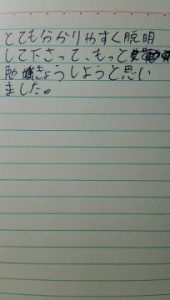 とても分かりやすく脱明
して下さって、もっと
勉きょうしようと思い
ました。